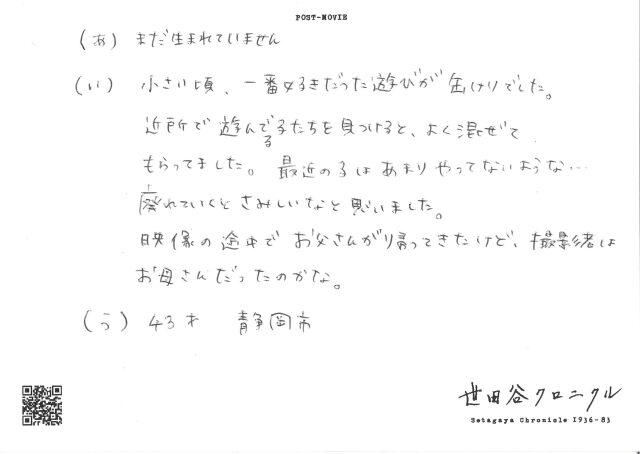 POST-MOVIE
(あ) まだ生まれていません
(い) 小さい頃、一番好きだった遊びが缶けりでした。
近所で遊んでる子たちを見つけると、よく混ぜて
もらってました。最近の子はあまりやってないような…
廃れていくとさみしいなと思いました。
映像の途中でお父さんが帰ってきたけど、撮影者は
お母さんだったのかな。
(う) 43才 静岡市
世田谷クロニクル
Setagaya Chronicle 1936-83